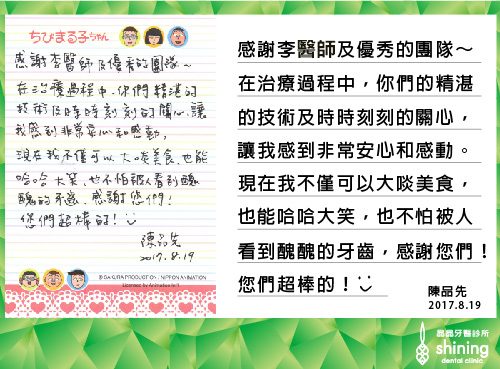 ちびまる子ちゃん
感謝李醫師及優秀的團隊～
在治療過程中,你們的精湛的
技術及時時刻刻的關心,讓
我感到非常安心和感動。
現在我不僅可以大啖美食,也能
哈哈大笑,也不怕被人看到醜
醜的牙齒,感謝您們!
您們超棒的!
陳品先
2017.8.19
© SAKURA PRODUCTION · NIPPON ANIMATION
感謝李醫師及優秀的團隊～
在治療過程中,你們的精湛
的技術及時時刻刻的關心,
讓我感到非常安心和感動。
現在我不僅可以大啖美食,
也能哈哈大笑,也不怕被人
看到醜醜的牙齒,感謝您們!
您們超棒的!
陳品先
2017.8.19
晶晶牙醫診所
shining
dental clinic